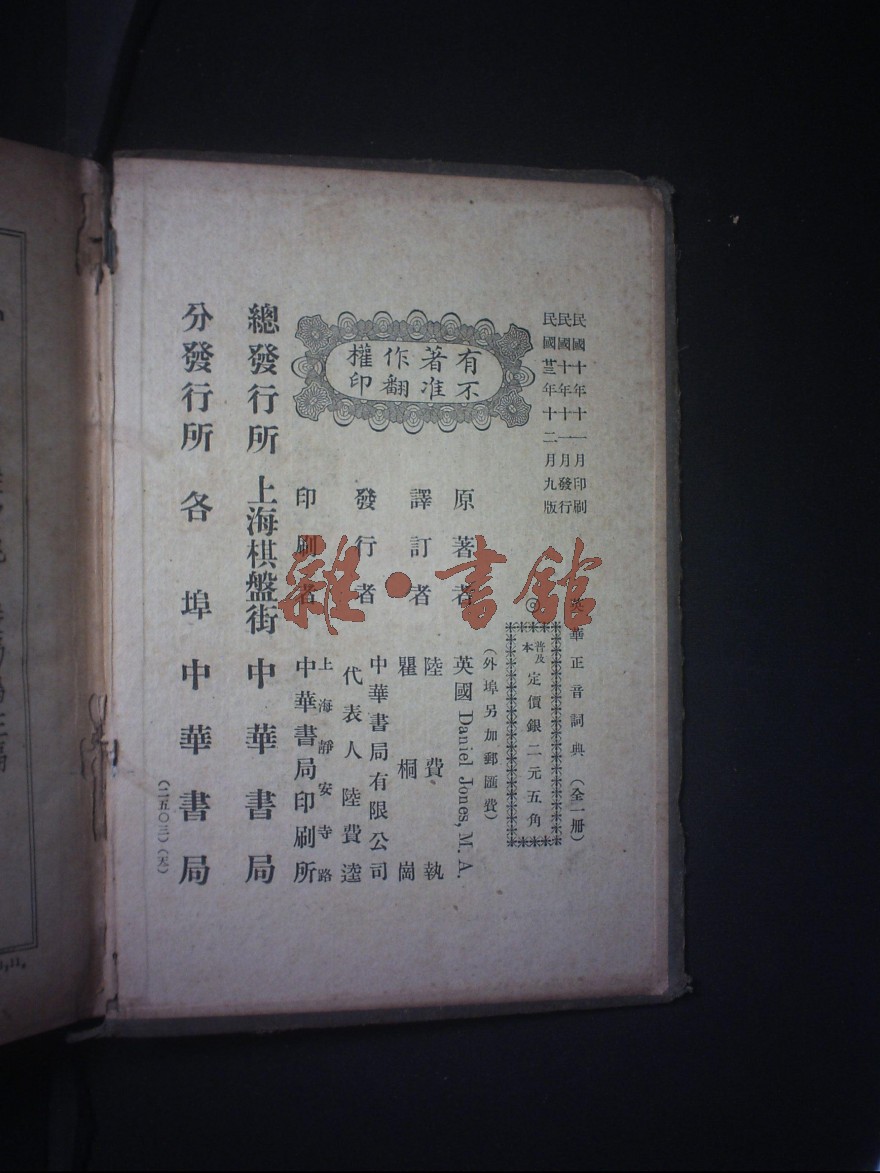 民國十年十一月印刷
民國十年十一月發行
民國廿三年十二月九版
英華正音詞典（全一冊）
◎
普及本 定價銀二元五角
（外埠另加郵匯費）
有著作權
不准翻印
原著者 英國 Daniel Jones, M. A.
譯訂者 陸費執
瞿桐崗
發行者 中華書局有限公司
代表人 陸費逵
印刷者 上海靜安寺路
中華書局印刷所
總發行所 上海棋盤街 中華書局
分發行所 各埠 中華書局
（二五〇三）（天）
雜·書館